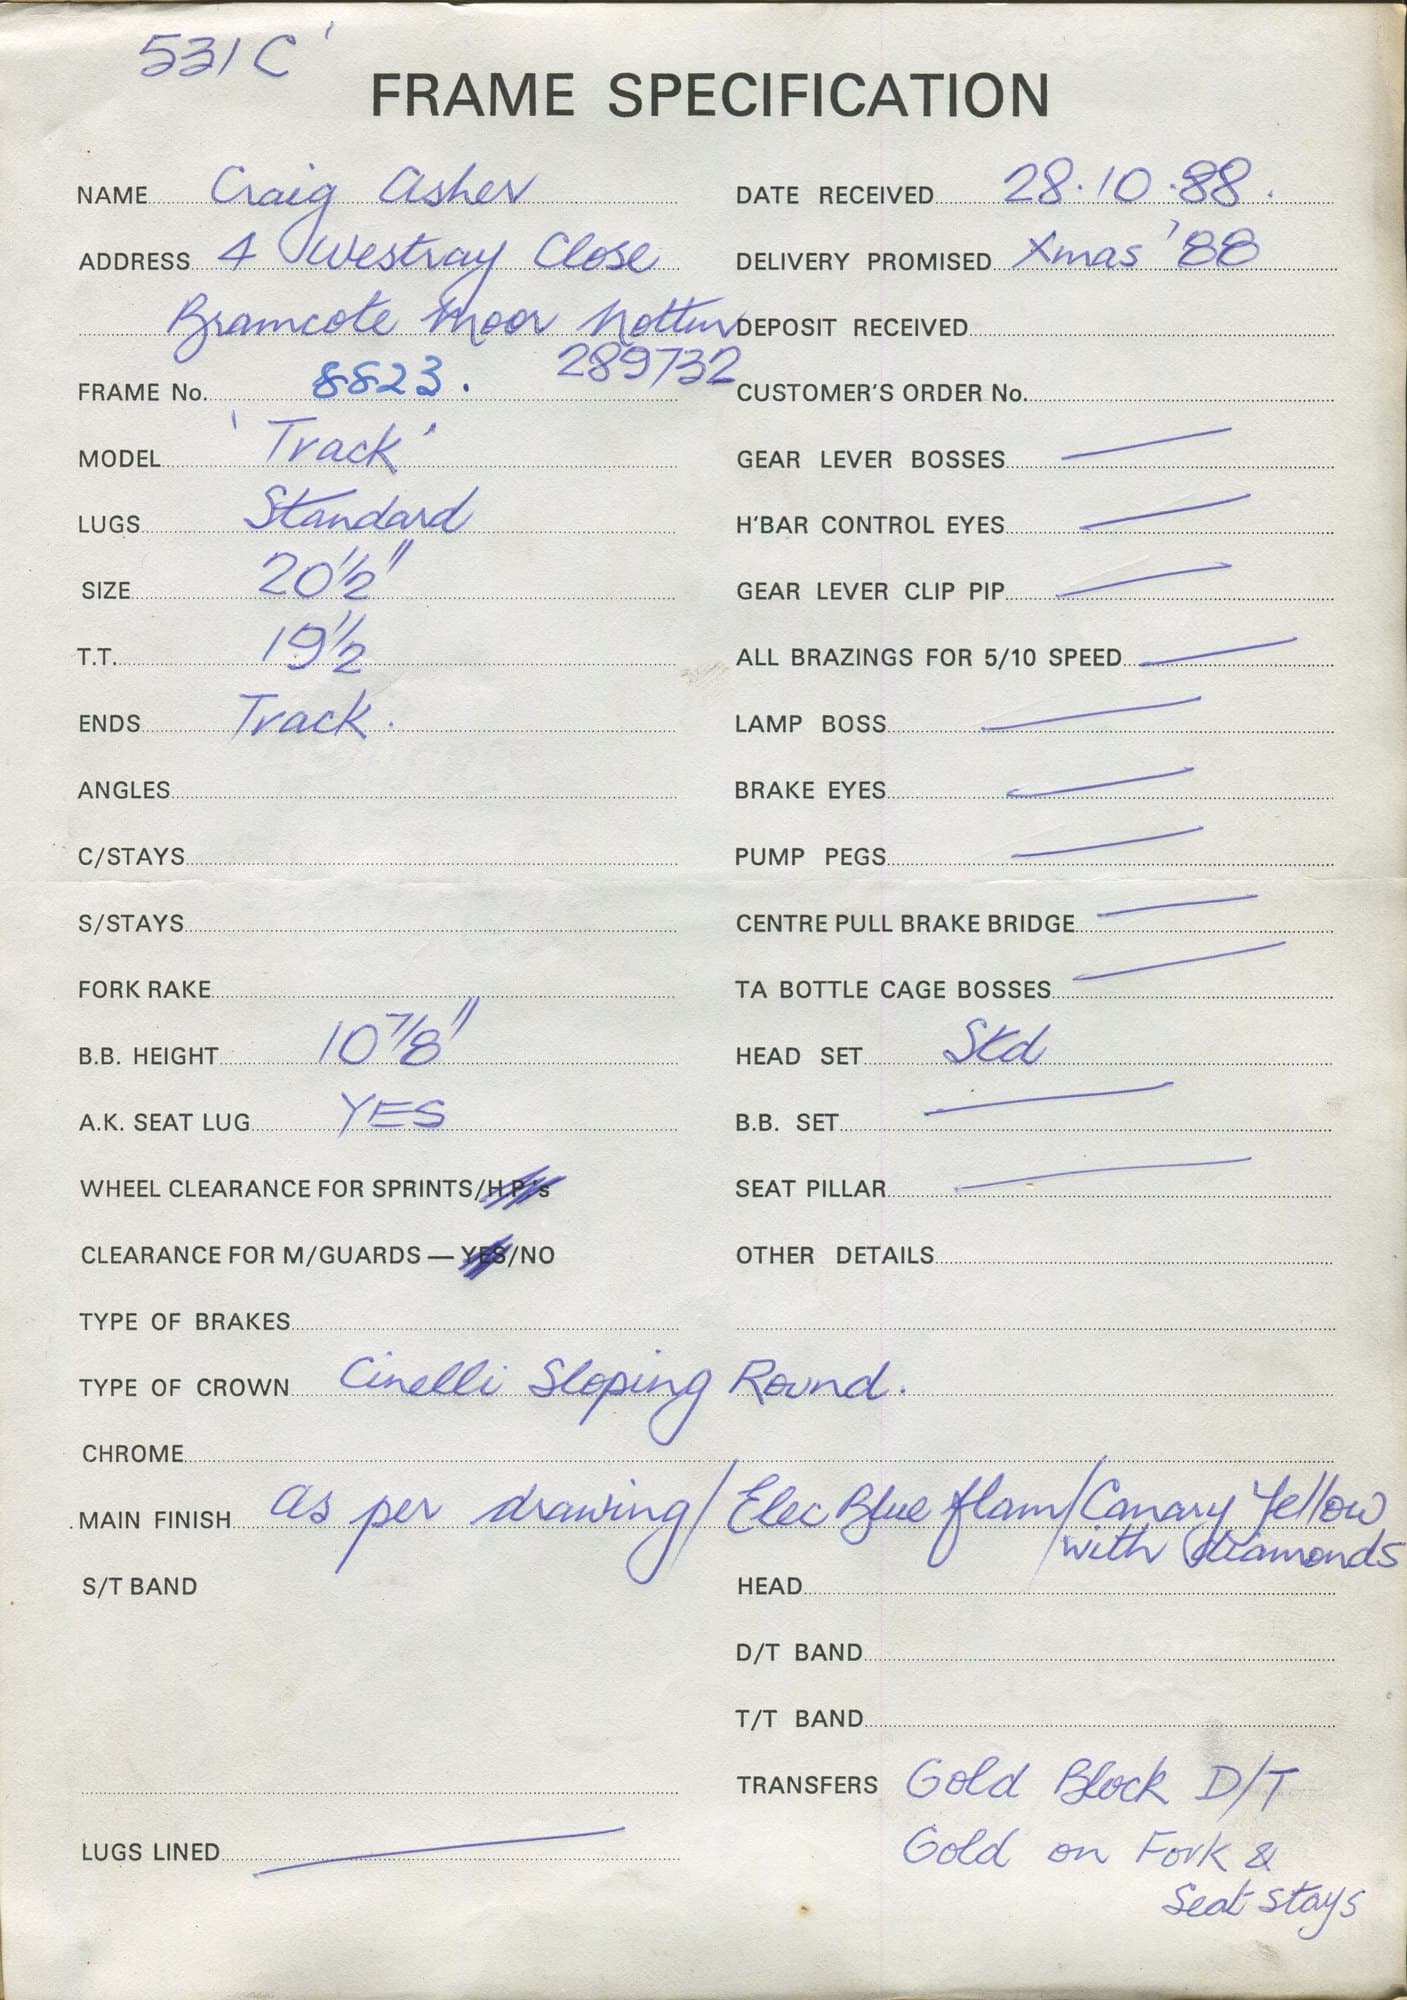 531C'
FRAME SPECIFICATION
NAME Craig Asher
ADDRESS 4 Westray Close
Bramcote Moor Nottm
289732
FRAME No. 8823.
MODEL 'Track'
LUGS Standard
SIZE 20 1/2"
T.T. 19 1/2
ENDS Track.
ANGLES
C/STAYS
S/STAYS
FORK RAKE
B.B. HEIGHT 10 7/8"
A.K. SEAT LUG YES
WHEEL CLEARANCE FOR SPRINTS/H.P.'s
CLEARANCE FOR M/GUARDS — YES/NO
TYPE OF BRAKES
DATE RECEIVED 28.10.88.
DELIVERY PROMISED Xmas '88
DEPOSIT RECEIVED
CUSTOMER'S ORDER No.
GEAR LEVER BOSSES
H'BAR CONTROL EYES
GEAR LEVER CLIP PIP
ALL BRAZINGS FOR 5/10 SPEED
LAMP BOSS
BRAKE EYES
PUMP PEGS
CENTRE PULL BRAKE BRIDGE
TA BOTTLE CAGE BOSSES
HEAD SET Std
B.B. SET
SEAT PILLAR
OTHER DETAILS
TYPE OF CROWN Cinelli Sloping Round.
CHROME
MAIN FINISH As per drawing/Elec Blue flam/Canary Yellow
with diamonds
S/T BAND
LUGS LINED
HEAD
D/T BAND
T/T BAND
TRANSFERS Gold Block D/T
Gold on Fork &
Seat stays